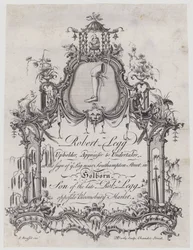 Robert Legg
Upholder, Appraiser & Undertaker
Sign of ye Leg near Southampton Street in
Holborn
Son of the late Rob. Legg
opposite Bloomsbury Market.